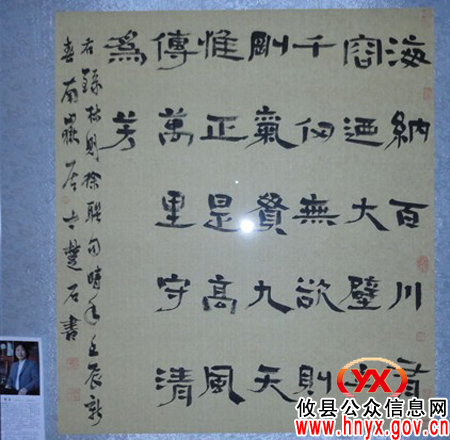 海納百川有
容迺大壁立
千仞無欲則
剛氣貫九天
惟正是高風
傳萬里守清
爲芳
右錄林則徐聯句時年壬辰新
春南嶽居士楚石書
YX
攸县公众信息网
www.hnyx.gov.cn